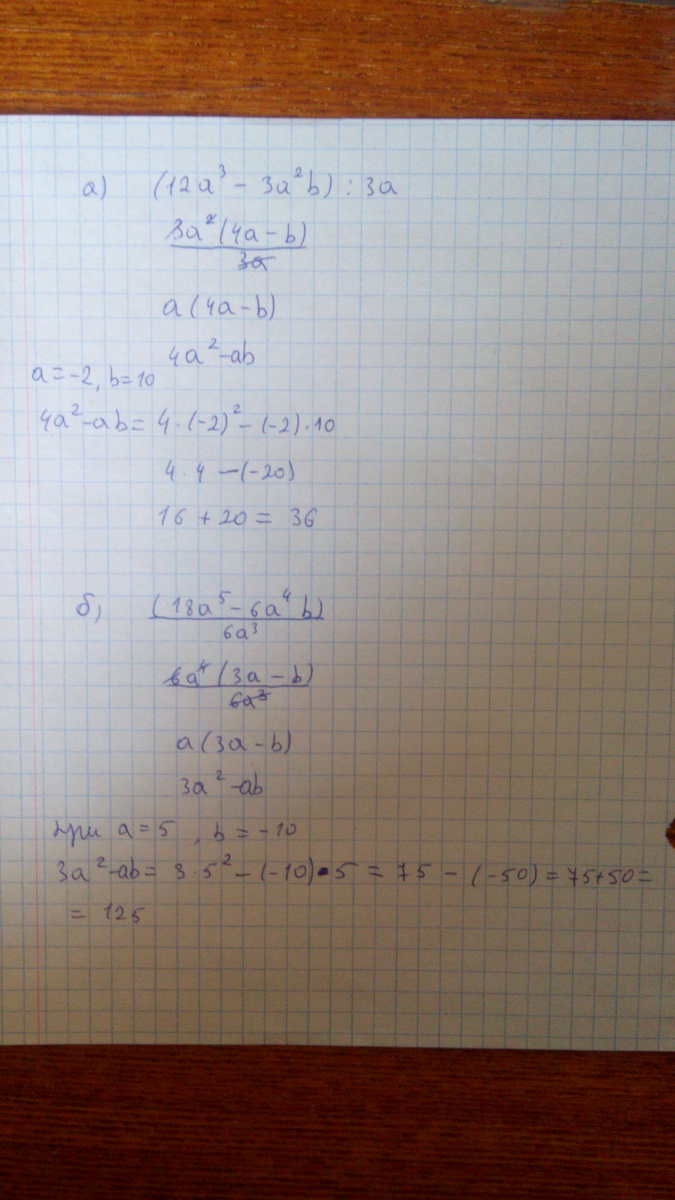 а) (12a³ - 3a²b) : 3a
3a²(4a-b)
3a
a(4a-b)
4a²-ab
a=-2, b=10
4a²-ab= 4·(-2)²-(-2)·10
4·4 -(-20)
16 + 20 = 36
б) (18a⁵-6a⁴b)
6a³
6a⁴(3a-b)
6a³
a(3a-b)
3a²-ab
при a=5 , b=-10
3a²-ab= 3·5²-(-10)·5 = 75 - (-50) = 75+50=
= 125